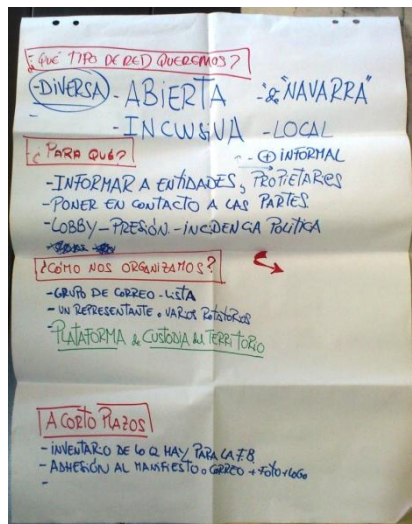 ¿QUÉ TIPO DE RED QUEREMOS?
-DIVERSA - ABIERTA - de "NAVARRA"
- INCLUSIVA - LOCAL
¿PARA QUÉ? - + INFORMAL
- INFORMAR A ENTIDADES, PROPIETARIOS
- PONER EN CONTACTO A LAS PARTES
- LOBBY - PRESIÓN - INCIDENCIA POLÍTICA
¿CÓMO NOS ORGANIZAMOS?
- GRUPO DE CORREO - LISTA
- UN REPRESENTANTE o VARIOS ROTATORIOS
- PLATAFORMA de CUSTODIA del TERRITORIO
A CORTO PLAZOS
- INVENTARIO DE LO Q HAY PARA LA F.B
- ADHESIÓN AL MANIFIESTO o CORREO + FOTO + LOGO